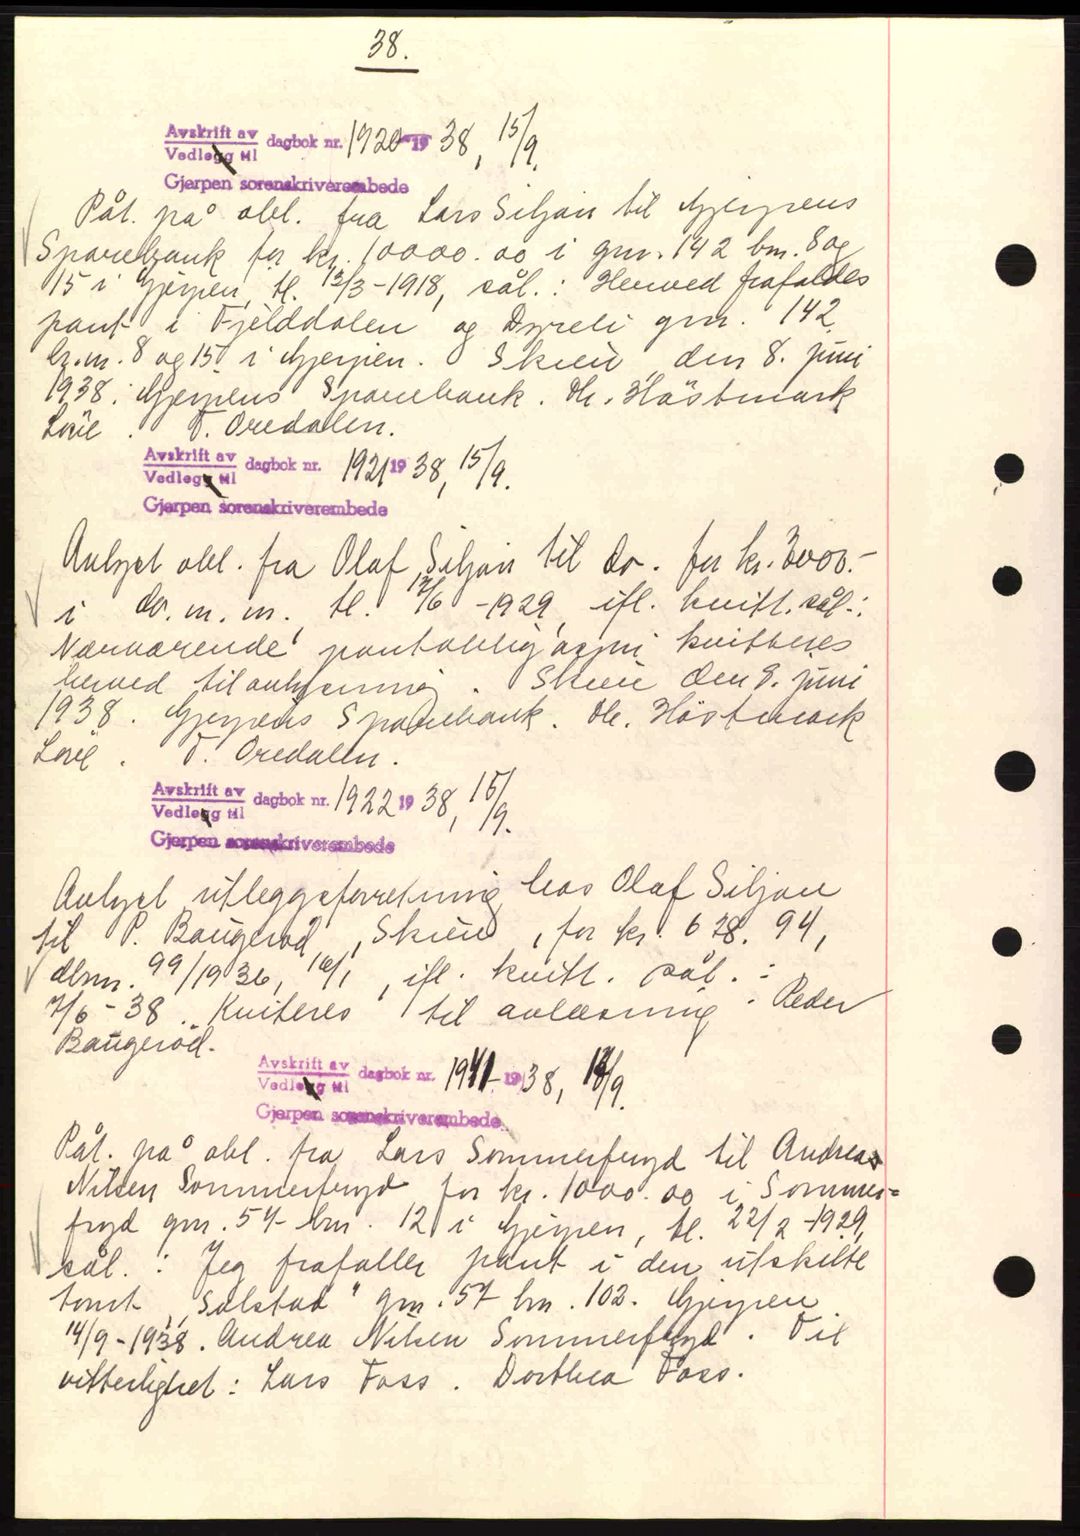 38.
Avskrift av
Vedlegg til
dagbok nr. 1920 1938, 15/9.
Gjerpen sorenskriverembede
Påt. på obl. fra Lars Siljan til Gjerpens
Sparebank for kr. 10000.00 i gnr. 142 bnr. 8 og
15 i Gjerpen, tl. 13/3-1918, sål.: Herved frafaldes
pant i Fjelddalen og Dyreli gnr. 142
br.nr. 8 og 15 i Gjerpen. Skien den 8. juni
1938. Gjerpens Sparebank. Hr. Høstmark
T. Oredalen.
Avskrift av
Vedlegg til
dagbok nr. 1921 1938, 15/9.
Gjerpen sorenskriverembede
Avlyst obl. fra Olaf Siljan til do. for kr. 3000.-
i do. m. m. tl. 12/6-1929, ifl. kvitt. sål.:
Nærværende pantobligasjon kvitteres
herved til avlysning. Skien den 8. juni
1938. Gjerpens Sparebank. Hr. Höstmark
T. Oredalen.
Avskrift av
Vedlegg til
dagbok nr. 1922 1938, 15/9.
Gjerpen sorenskriverembede
Avlyst utleggsforretning hos Olaf Siljan
til P. Baugerød, Skien, for kr. 628.94,
dbnr. 99/1936, 16/1, ifl. kvitt. sål.:
7/6-38. Kviteres til avlæsning. Peder
Baugerød.
Avskrift av
Vedlegg til
dagbok nr. 1941 1938, /9.
Gjerpen sorenskriverembede.
Påt. på obl. fra Lars Sommerfryd til Andrea
Nilsen Sommerfryd for kr. 1000.00 i Sommer=
fryd gnr. 57 bnr. 12 i Gjerpen, tl. 22/2-1929,
sål.: Jeg frafaller pant i den utskilte
tomt „Solstad" gnr. 57 bnr. 102. Gjerpen
14/9-1938. Andrea Nilsen Sommerfryd. Til
vitterlighet: Lars Foss. Dorthea Foss.